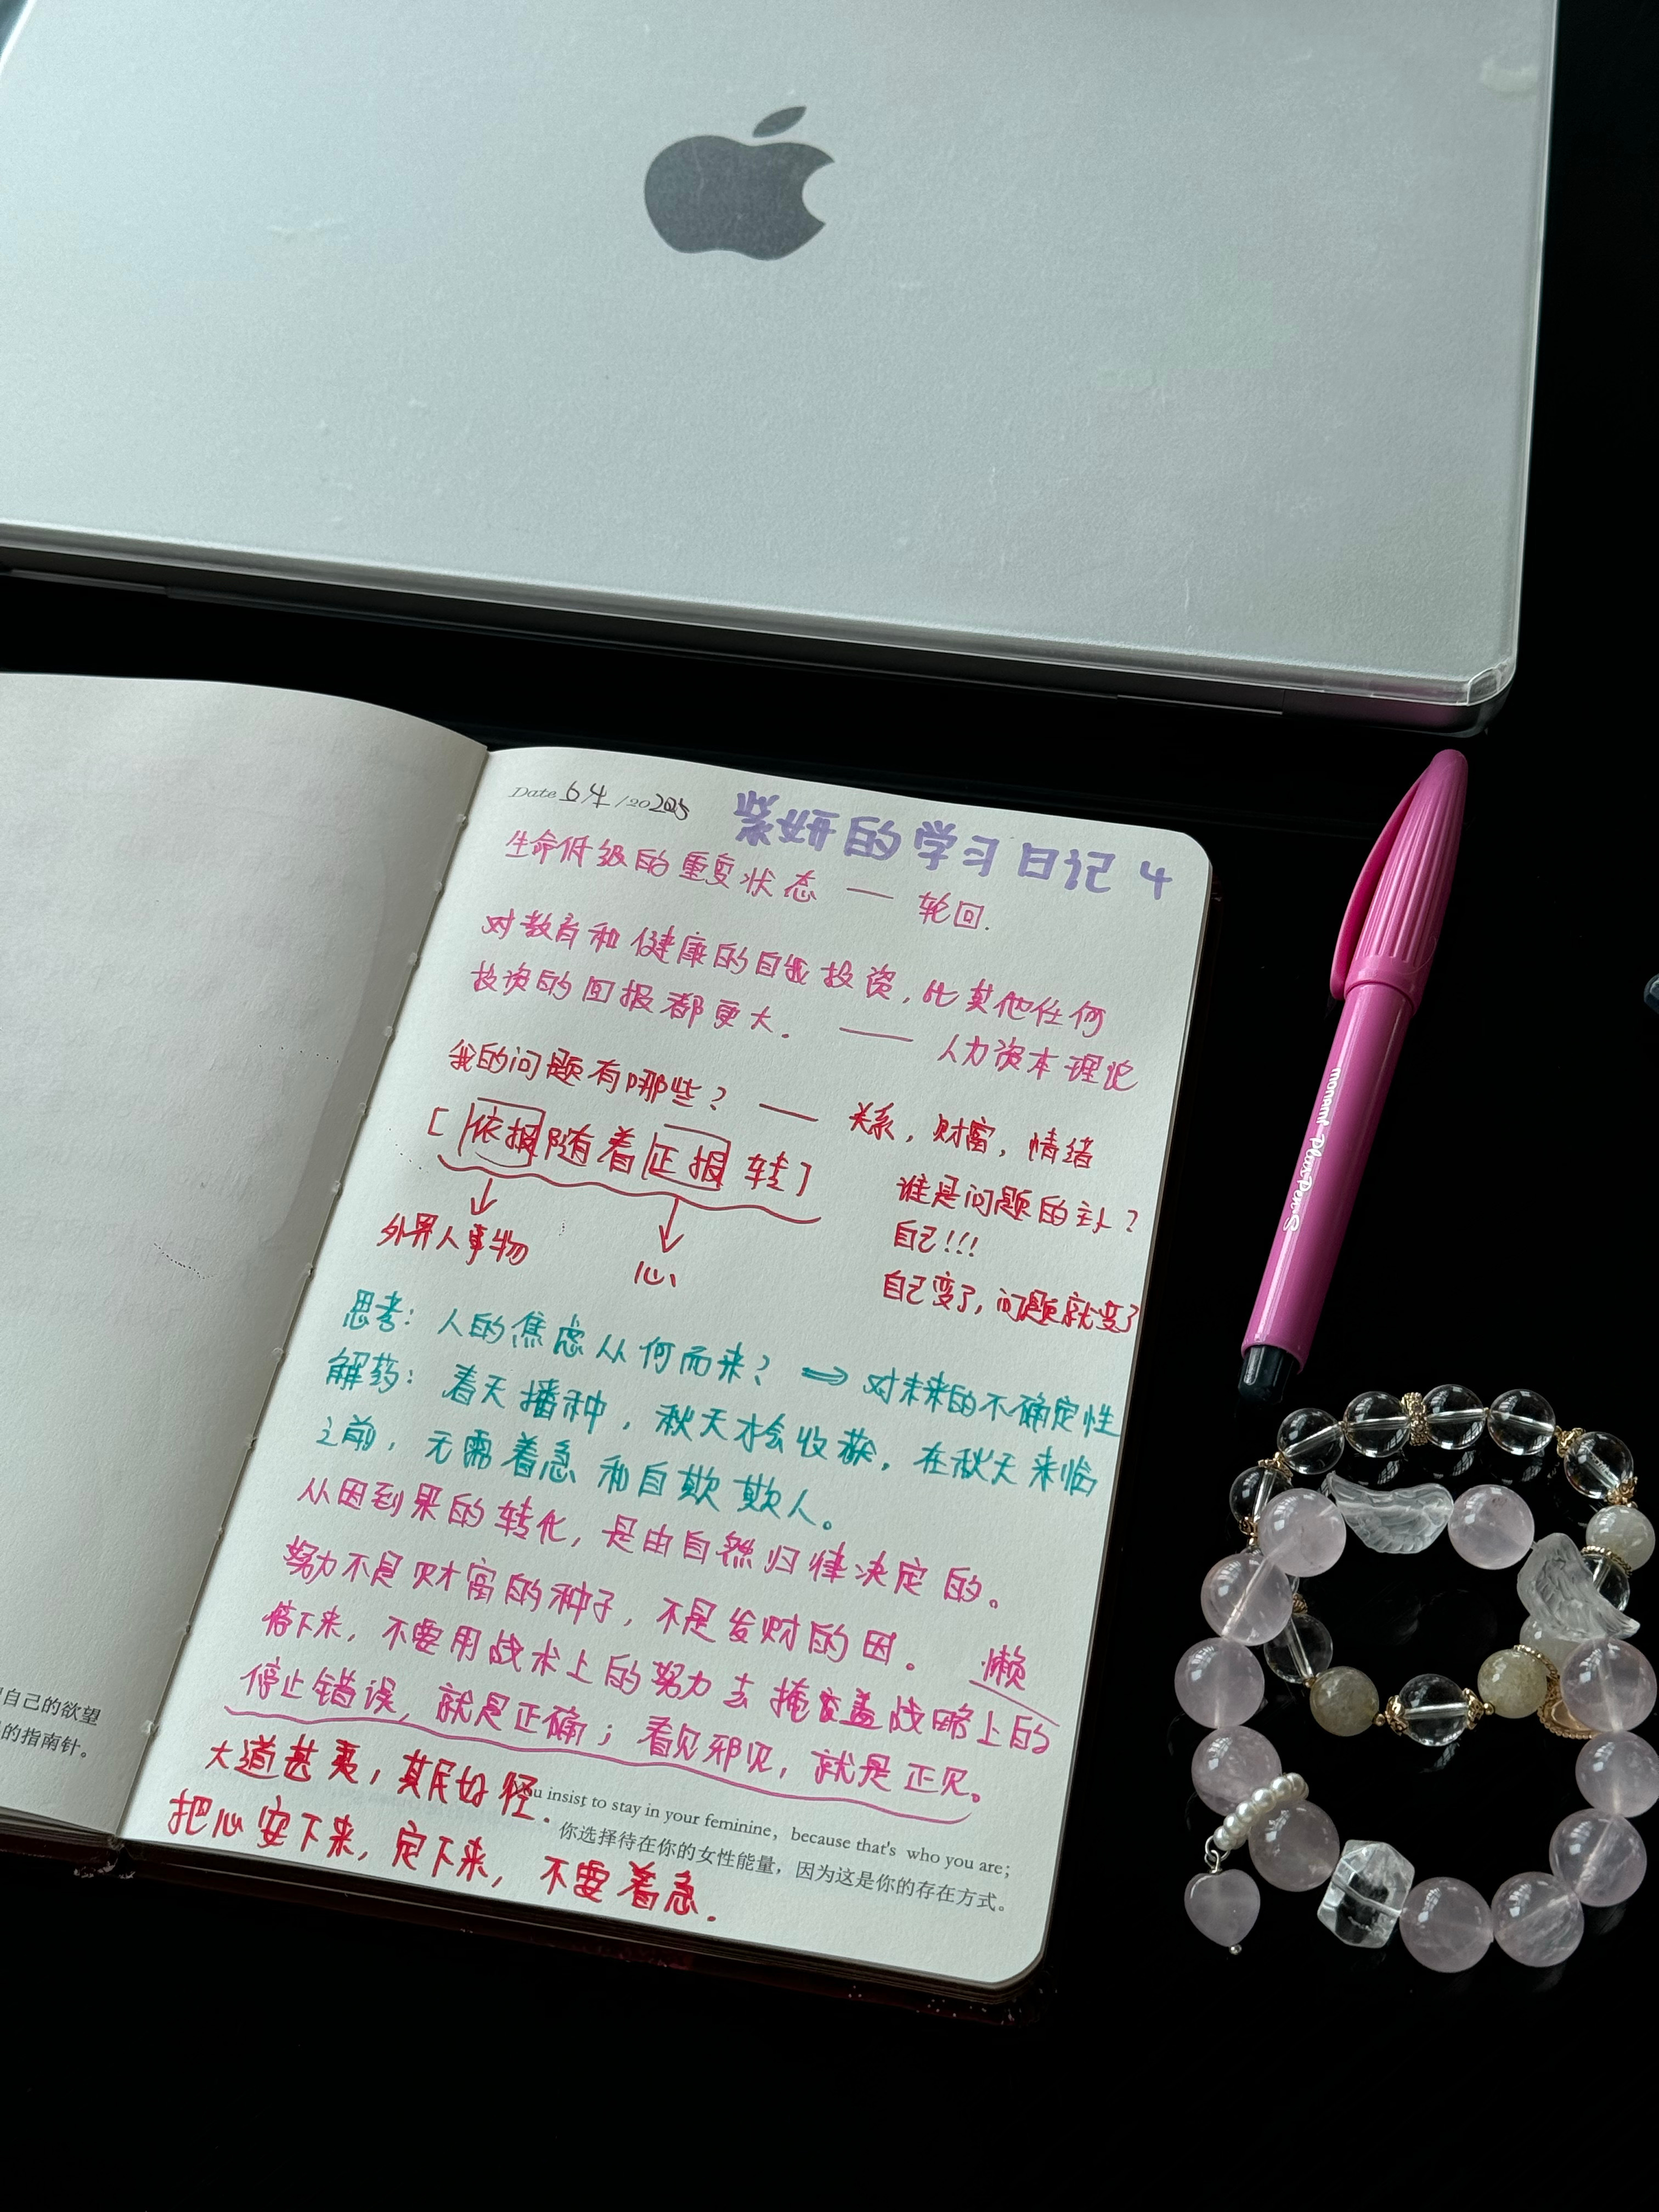 Date 6/4 /202025
紫妍的学习日记 4
生命低级的重复状态 — 轮回.
对教育和健康的自我投资,比其他任何
投资的回报都更大. —— 人力资本理论
我的问题有哪些? —— 关系,财富,情绪
[依报随着正报转]
谁是问题的主人?
外界人事物
心
自己!!!
自己变了,问题就变了
思考: 人的焦虑从何而来? ⇒ 对未来的不确定性
解药: 春天播种,秋天才会收获,在秋天来临
之前,无需着急和自欺欺人。
从因到果的转化,是由自然归律决定的。
努力不是财富的种子,不是发财的因。
停下来,不要用战术上的努力去掩盖战略上的
懒
停止错误,就是正确;看见邪见,就是正见。
大道甚夷,其民好径.
You insist to stay in your feminine, because that's who you are;
你选择待在你的女性能量,因为这是你的存在方式。
把心安下来,定下来,不要着急.
自己的欲望
的指南针。
monami Plus Pen S